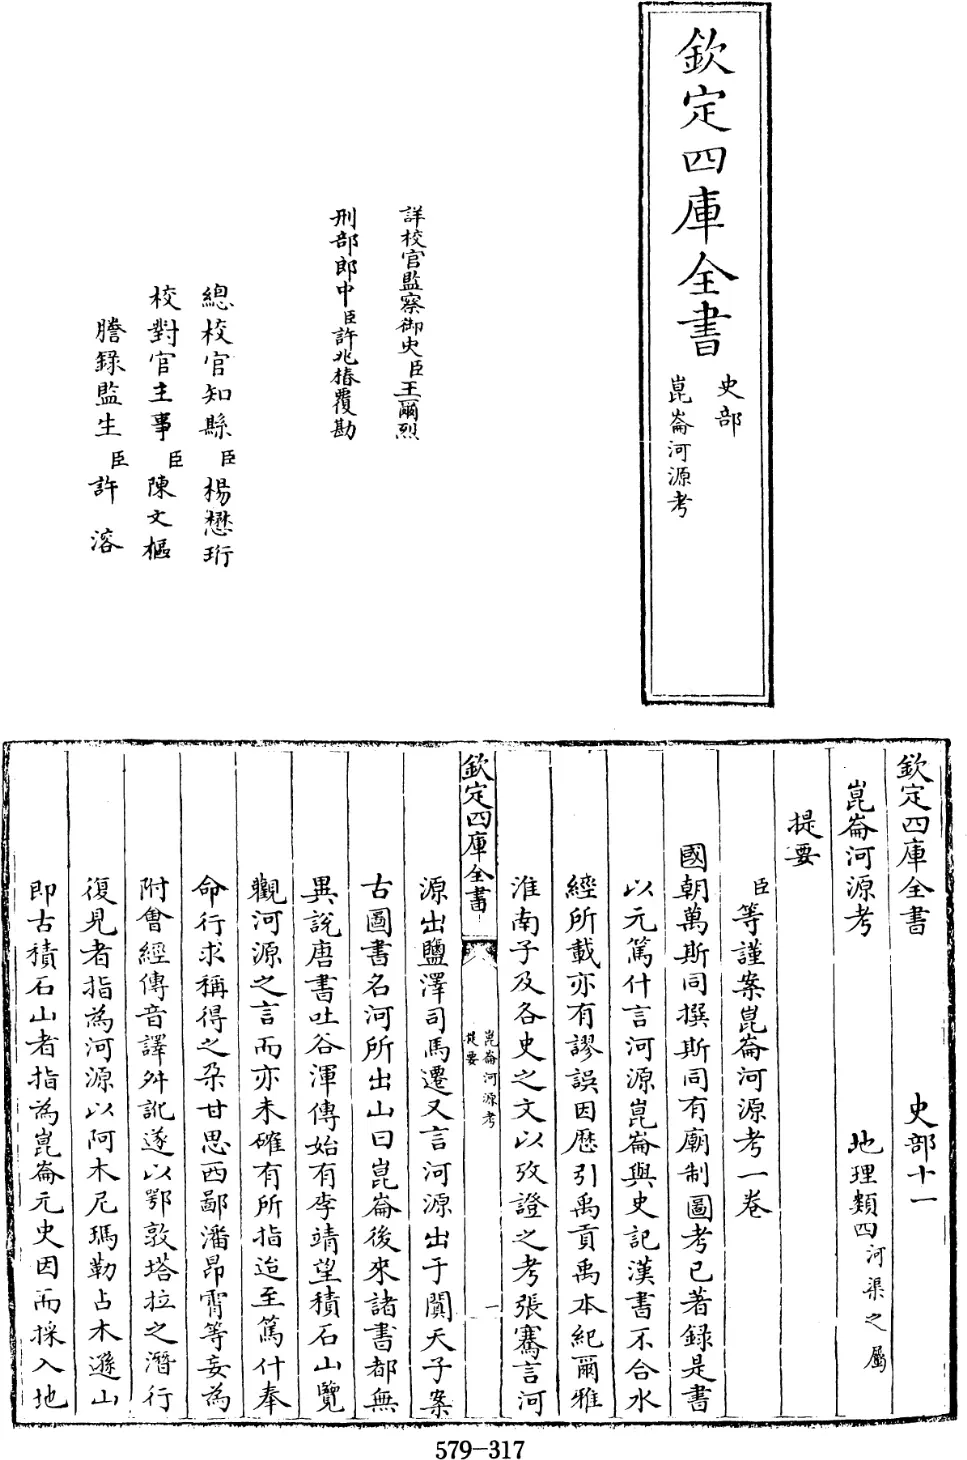 欽定四庫全書
史部
崑崙河源考
詳校官監察御史臣王爾烈
刑部郎中臣許兆椿覆勘
總校官知縣臣楊懋珩
校對官主事臣陳文樞
謄錄監生臣許溶
欽定四庫全書 史部十一
崑崙河源考 地理類四河渠之屬
提要
臣等謹案崑崙河源考一卷
國朝萬斯同撰斯同有廟制圖考已著録是書
以元篤什言河源崑崙與史記漢書不合水
經所載亦有謬誤因歷引禹貢禹本紀爾雅
淮南子及各史之文以攷證之考張騫言河
欽定四庫全書
崑崙河源考
提要
一
源出鹽澤司馬遷又言河源出于闐天子案
古圖書名河所出山曰崑崙後來諸書都無
異說唐書吐谷渾傳始有李靖望積石山覽
觀河源之言而亦未確有所指迨至篤什奉
命行求稱得之朶甘思西鄙潘昂霄等妄為
附會經傳音譯舛訛遂以鄂敦塔拉之潛行
復見者指為河源以阿木尼瑪勒占木遜山
即古積石山者指為崑崙元史因而採入地
579-317